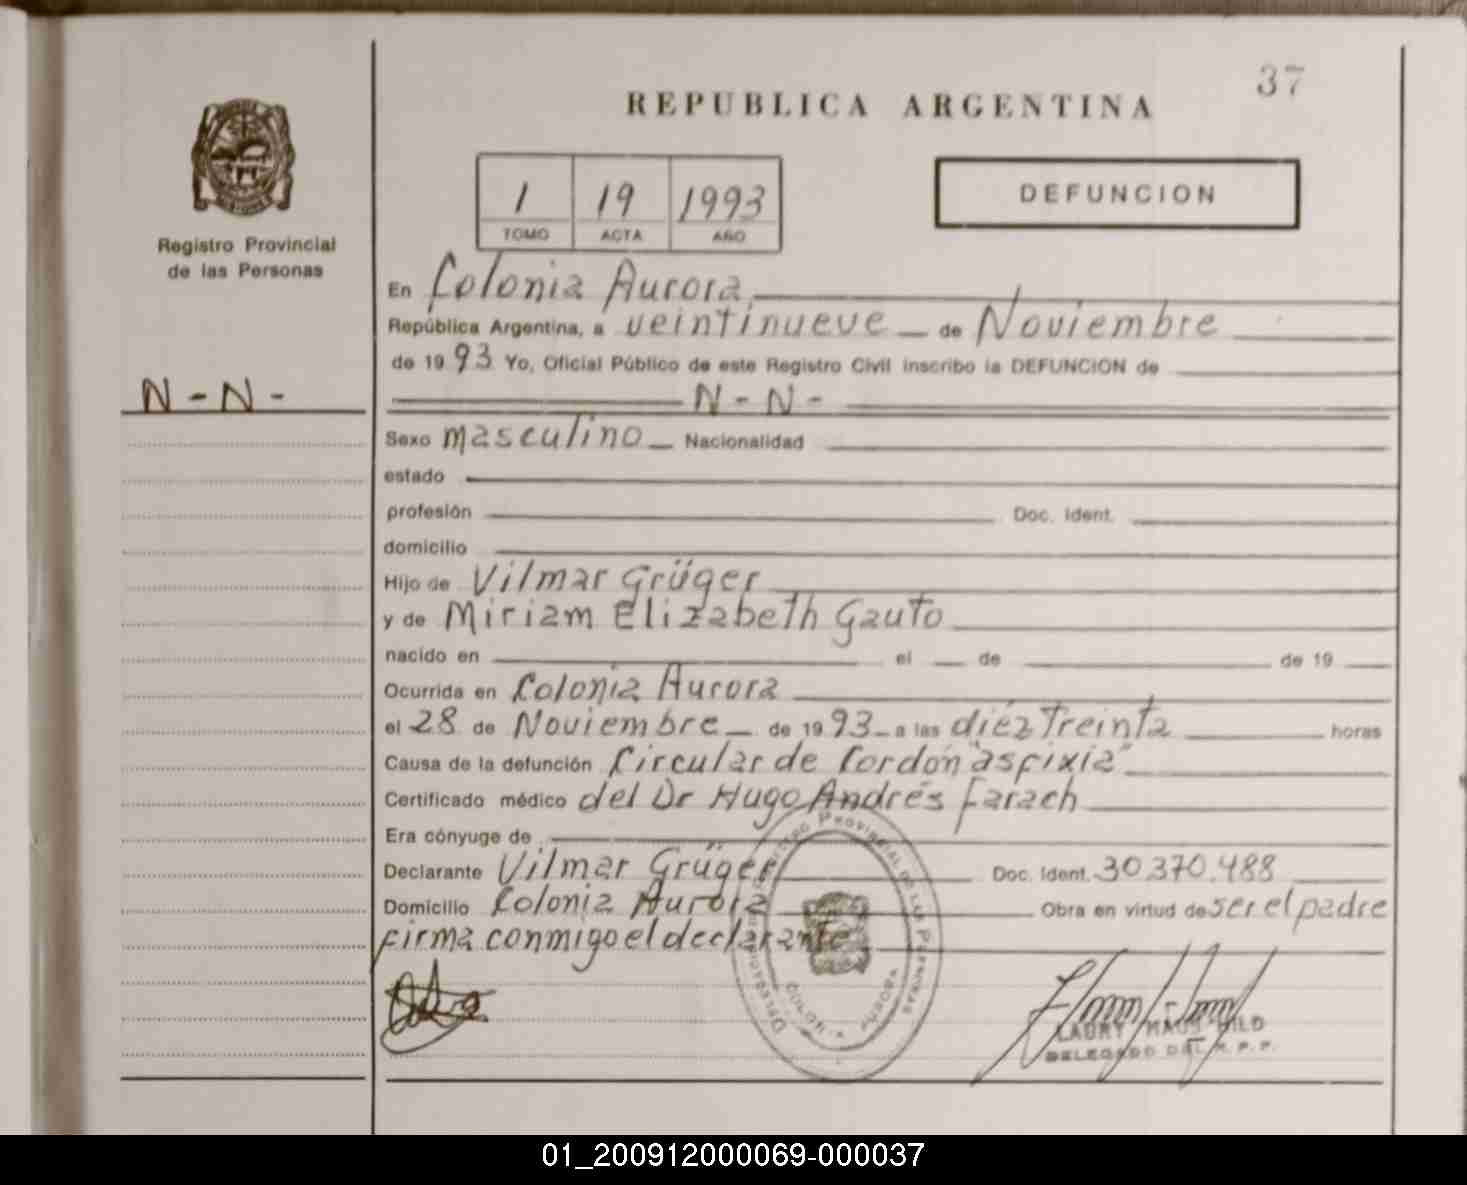 37
REPUBLICA ARGENTINA
1 19 1993
TOMO ACTA AÑO
DEFUNCION
Registro Provincial
de las Personas
En Colonia Aurora
República Argentina, a veintinueve de Noviembre
de 1993 Yo, Oficial Público de este Registro Civil inscribo la DEFUNCION de
N - N -
N - N -
Sexo masculino Nacionalidad
estado
profesión Doc. Ident.
domicilio
Hijo de Vilmar Grüger
y de Miriam Elizabeth Gauto
nacido en el de de 19
Ocurrida en Colonia Aurora
el 28 de Noviembre de 1993 a las diéz treinta horas
Causa de la defunción Circular de Cordón "asfixia"
Certificado médico del Dr Hugo Andrés Farach
Era cónyuge de
Declarante Vilmar Grüger Doc. Ident. 30.370.488
Domicilio Colonia Aurora Obra en virtud de ser el padre
firma conmigo el declarante
DELEGACION REGISTRO PROVINCIAL DE LAS PERSONAS
COLONIA AURORA
DELEGADO DEL R. P. P.
01_200912000069-000037